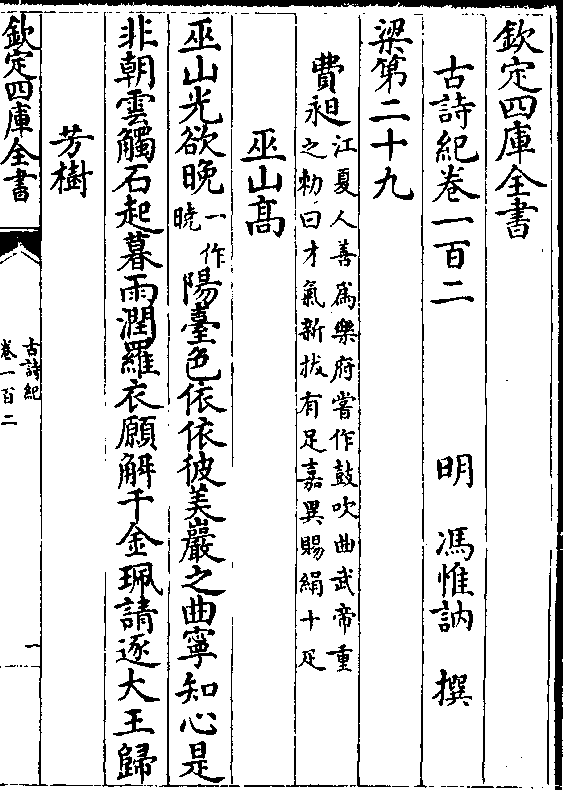 欽定四庫全書
古詩紀卷一百二 明 馮惟訥 撰
梁第二十九
費昶 江夏人善爲樂府嘗作鼓吹曲武帝重
之勑曰才氣新拔有足嘉異賜絹十疋
巫山髙
巫山光欲晚一作曉陽臺色依依彼美巖之曲寧知心是
非朝雲觸石起暮雨潤羅衣願解千金珮請逐大王歸
芳樹
欽定四庫全書
古詩紀
卷一百二
一